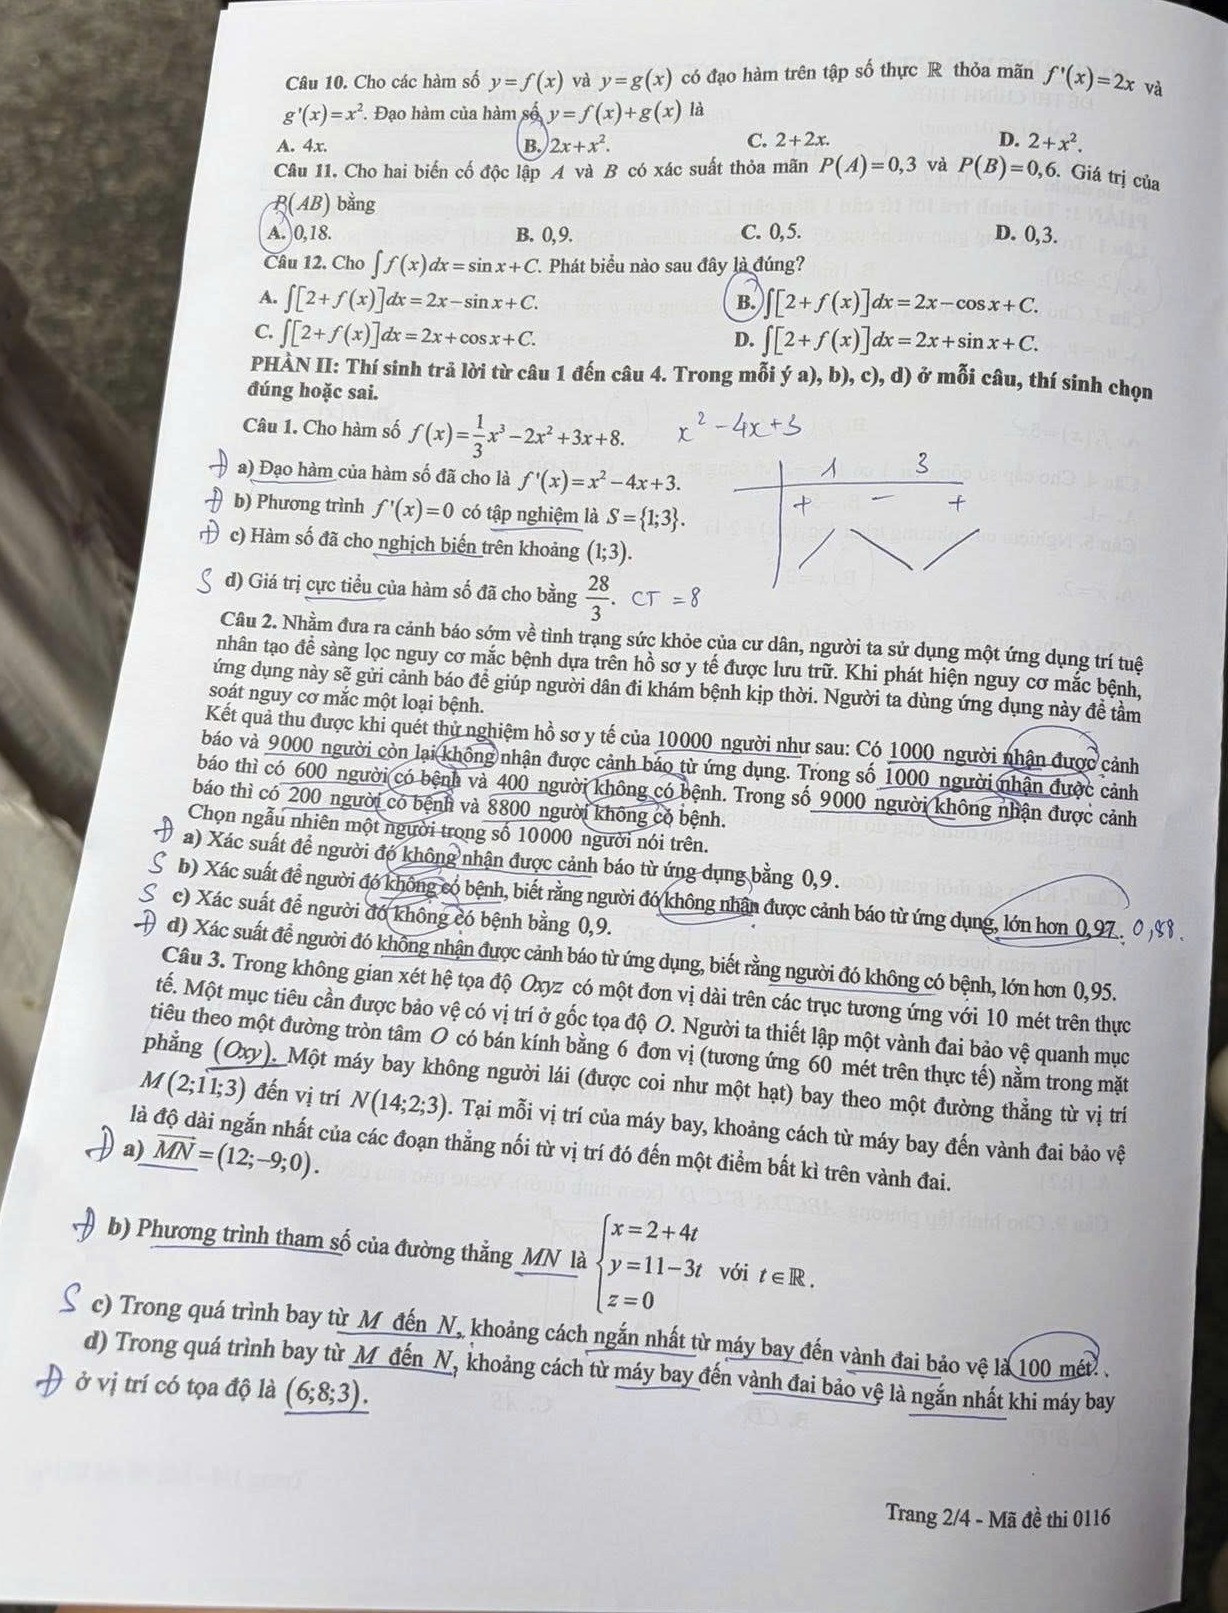 Câu 10. Cho các hàm số y = f(x) và y = g(x) có đạo hàm trên tập số thực ℝ thỏa mãn f'(x) = 2x và
g'(x) = x². Đạo hàm của hàm số y = f(x) + g(x) là
A. 4x. B. 2x + x². C. 2 + 2x. D. 2 + x².
Câu 11. Cho hai biến cố độc lập A và B có xác suất thỏa mãn P(A) = 0,3 và P(B) = 0,6. Giá trị của
P(AB) bằng
A. 0,18. B. 0,9. C. 0,5. D. 0,3.
Câu 12. Cho ∫f(x)dx = sin x + C. Phát biểu nào sau đây là đúng?
A. ∫[2 + f(x)]dx = 2x − sin x + C. B. ∫[2 + f(x)]dx = 2x − cos x + C.
C. ∫[2 + f(x)]dx = 2x + cos x + C. D. ∫[2 + f(x)]dx = 2x + sin x + C.
PHẦN II: Thí sinh trả lời từ câu 1 đến câu 4. Trong mỗi ý a), b), c), d) ở mỗi câu, thí sinh chọn
đúng hoặc sai.
Câu 1. Cho hàm số f(x) = 1/3 x³ − 2x² + 3x + 8. x² − 4x + 3
Đ a) Đạo hàm của hàm số đã cho là f'(x) = x² − 4x + 3. 1 3
Đ b) Phương trình f'(x) = 0 có tập nghiệm là S = {1;3}. + − +
Đ c) Hàm số đã cho nghịch biến trên khoảng (1;3).
S d) Giá trị cực tiểu của hàm số đã cho bằng 28/3. CT = 8
Câu 2. Nhằm đưa ra cảnh báo sớm về tình trạng sức khỏe của cư dân, người ta sử dụng một ứng dụng trí tuệ
nhân tạo để sàng lọc nguy cơ mắc bệnh dựa trên hồ sơ y tế được lưu trữ. Khi phát hiện nguy cơ mắc bệnh,
ứng dụng này sẽ gửi cảnh báo để giúp người dân đi khám bệnh kịp thời. Người ta dùng ứng dụng này để tầm
soát nguy cơ mắc một loại bệnh.
Kết quả thu được khi quét thử nghiệm hồ sơ y tế của 10000 người như sau: Có 1000 người nhận được cảnh
báo và 9000 người còn lại không nhận được cảnh báo từ ứng dụng. Trong số 1000 người nhận được cảnh
báo thì có 600 người có bệnh và 400 người không có bệnh. Trong số 9000 người không nhận được cảnh
báo thì có 200 người có bệnh và 8800 người không có bệnh.
Chọn ngẫu nhiên một người trong số 10000 người nói trên.
Đ a) Xác suất để người đó không nhận được cảnh báo từ ứng dụng bằng 0,9.
S b) Xác suất để người đó không có bệnh, biết rằng người đó không nhận được cảnh báo từ ứng dụng, lớn hơn 0,97. 0,88.
S c) Xác suất để người đó không có bệnh bằng 0,9.
Đ d) Xác suất để người đó không nhận được cảnh báo từ ứng dụng, biết rằng người đó không có bệnh, lớn hơn 0,95.
Câu 3. Trong không gian xét hệ tọa độ Oxyz có một đơn vị dài trên các trục tương ứng với 10 mét trên thực
tế. Một mục tiêu cần được bảo vệ có vị trí ở gốc tọa độ O. Người ta thiết lập một vành đai bảo vệ quanh mục
tiêu theo một đường tròn tâm O có bán kính bằng 6 đơn vị (tương ứng 60 mét trên thực tế) nằm trong mặt
phẳng (Oxy). Một máy bay không người lái (được coi như một hạt) bay theo một đường thẳng từ vị trí
M(2;11;3) đến vị trí N(14;2;3). Tại mỗi vị trí của máy bay, khoảng cách từ máy bay đến vành đai bảo vệ
là độ dài ngắn nhất của các đoạn thẳng nối từ vị trí đó đến một điểm bất kì trên vành đai.
Đ a) MN = (12;−9;0).
Đ b) Phương trình tham số của đường thẳng MN là { x = 2 + 4t
y = 11 − 3t với t ∈ ℝ.
z = 0
S c) Trong quá trình bay từ M đến N, khoảng cách ngắn nhất từ máy bay đến vành đai bảo vệ là 100 mét.
d) Trong quá trình bay từ M đến N, khoảng cách từ máy bay đến vành đai bảo vệ là ngắn nhất khi máy bay
Đ ở vị trí có tọa độ là (6;8;3).
Trang 2/4 - Mã đề thi 0116